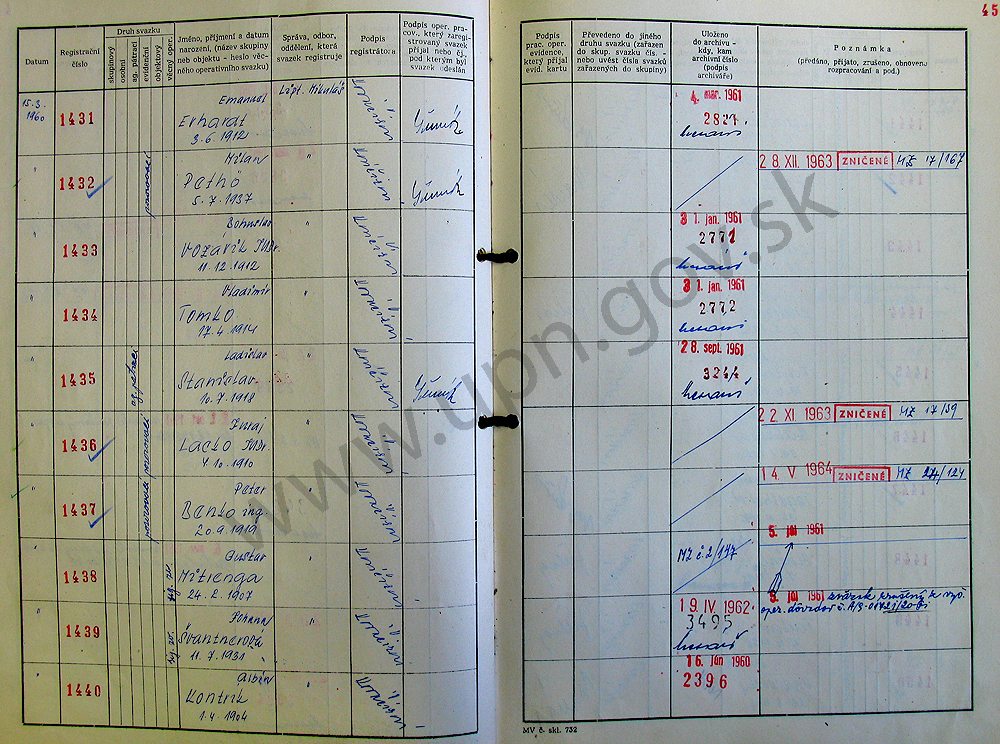 45
Datum
Registrační číslo
Druh svazku
skupinový
osobní
ag. pátrací
evidenční
objektový
věcný oper.
Jméno, příjmení a datum
narození, (název skupiny
neb objektu - heslo věc-
ného operativního svazku)
Správa, odbor,
oddělení, která
svazek registruje
Podpis
registrátora
Podpis oper. pra-
cov., který zareg-
istrovaný svazek
přijal nebo čj.
pod kterým byl
svazek odeslán
Podpis
prac. oper.
evidence,
který přijal
evid. kartu
Převedeno do jiného
druhu svazku (zařazen
do skup. svazku čís. -
nebo uvést čísla svazků
zařazených do skupiny)
Uloženo
do archivu -
kdy, kam
archivní číslo
(podpis
archiváře)
Poznámka
(předáno, přijato, zrušeno, obnoveno
rozpracování a pod.)
15.3.
1960
1431
Emanuel
Erharat
3.6.1912
Lipt. Mikuláš
4. mar. 1961
2821
"
1432
Milan
Pethö
5.7.1937
"
28. XII. 1963 ZNIČENÉ MZ 17/167
"
1433
Bohuslav
Vozárik JUDr.
11.12.1912
"
31. jan. 1961
2771
"
1434
Vladimír
Tomko
17.4.1914
"
31. jan. 1961
2772
"
1435
ag. pátrací
Ladislav
Stanislav
10.7.1918
"
28. sept. 1961
3244
"
1436
Juraj
Lacko JUDr.
4.10.1910
"
22. XI. 1963 ZNIČENÉ MZ 17/59
"
1437
Peter
Benko ing.
20.9.1919
"
14. V 1964 ZNIČENÉ MZ 24/124
"
1438
Gustav
Mitrenga
24.2.1907
"
MZ č. 2/147
5. júl 1961
"
1439
Johanna
Švantnerová
11.7.1931
"
19. IV 1962
3495
5. júl 1961 zväzok zrušený
"
1440
Albín
Kontrik
1.4.1904
"
16. jún 1960
2396
MV č. skl. 732
www.upn.gov.sk